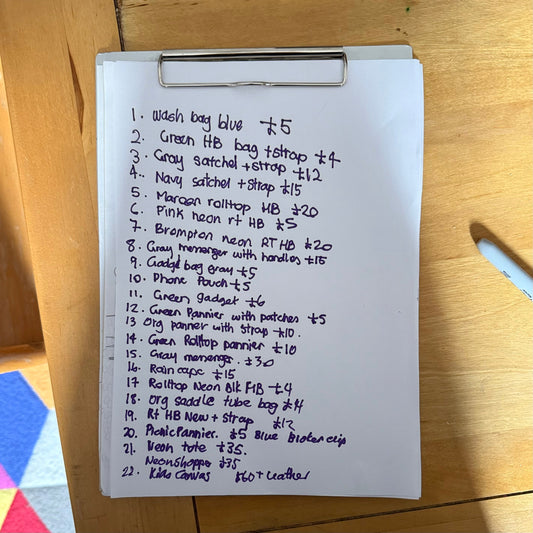 1. Wash bag blue £5
2. Green HB bag + strap £4
3. Gray satchel + strap £12
4. Navy satchel + strap £15
5. Maroon rolltop HB £20
6. Pink neon rt HB £5
7. Brompton neon RT HB £20
8. Gray messenger with handles £15
9. Gadget bag gray £5
10. Phone Pouch £5
11. Green gadget £6
12. Green Pannier with patches £5
13 Org panner with strap £10.
14. Green Rolltop pannier £10
15. Gray messenger. £30
16. Rain cape £15
17 Rolltop Neon Blk HB £4
18. Org saddle tube bag £14
19. Rt HB New + strap £12
20. Picnic Pannier. £5 Blue Broken clip
21. Neon tote £35.
Neon Shopper £35
22. Kids Canvas £60 + Leather